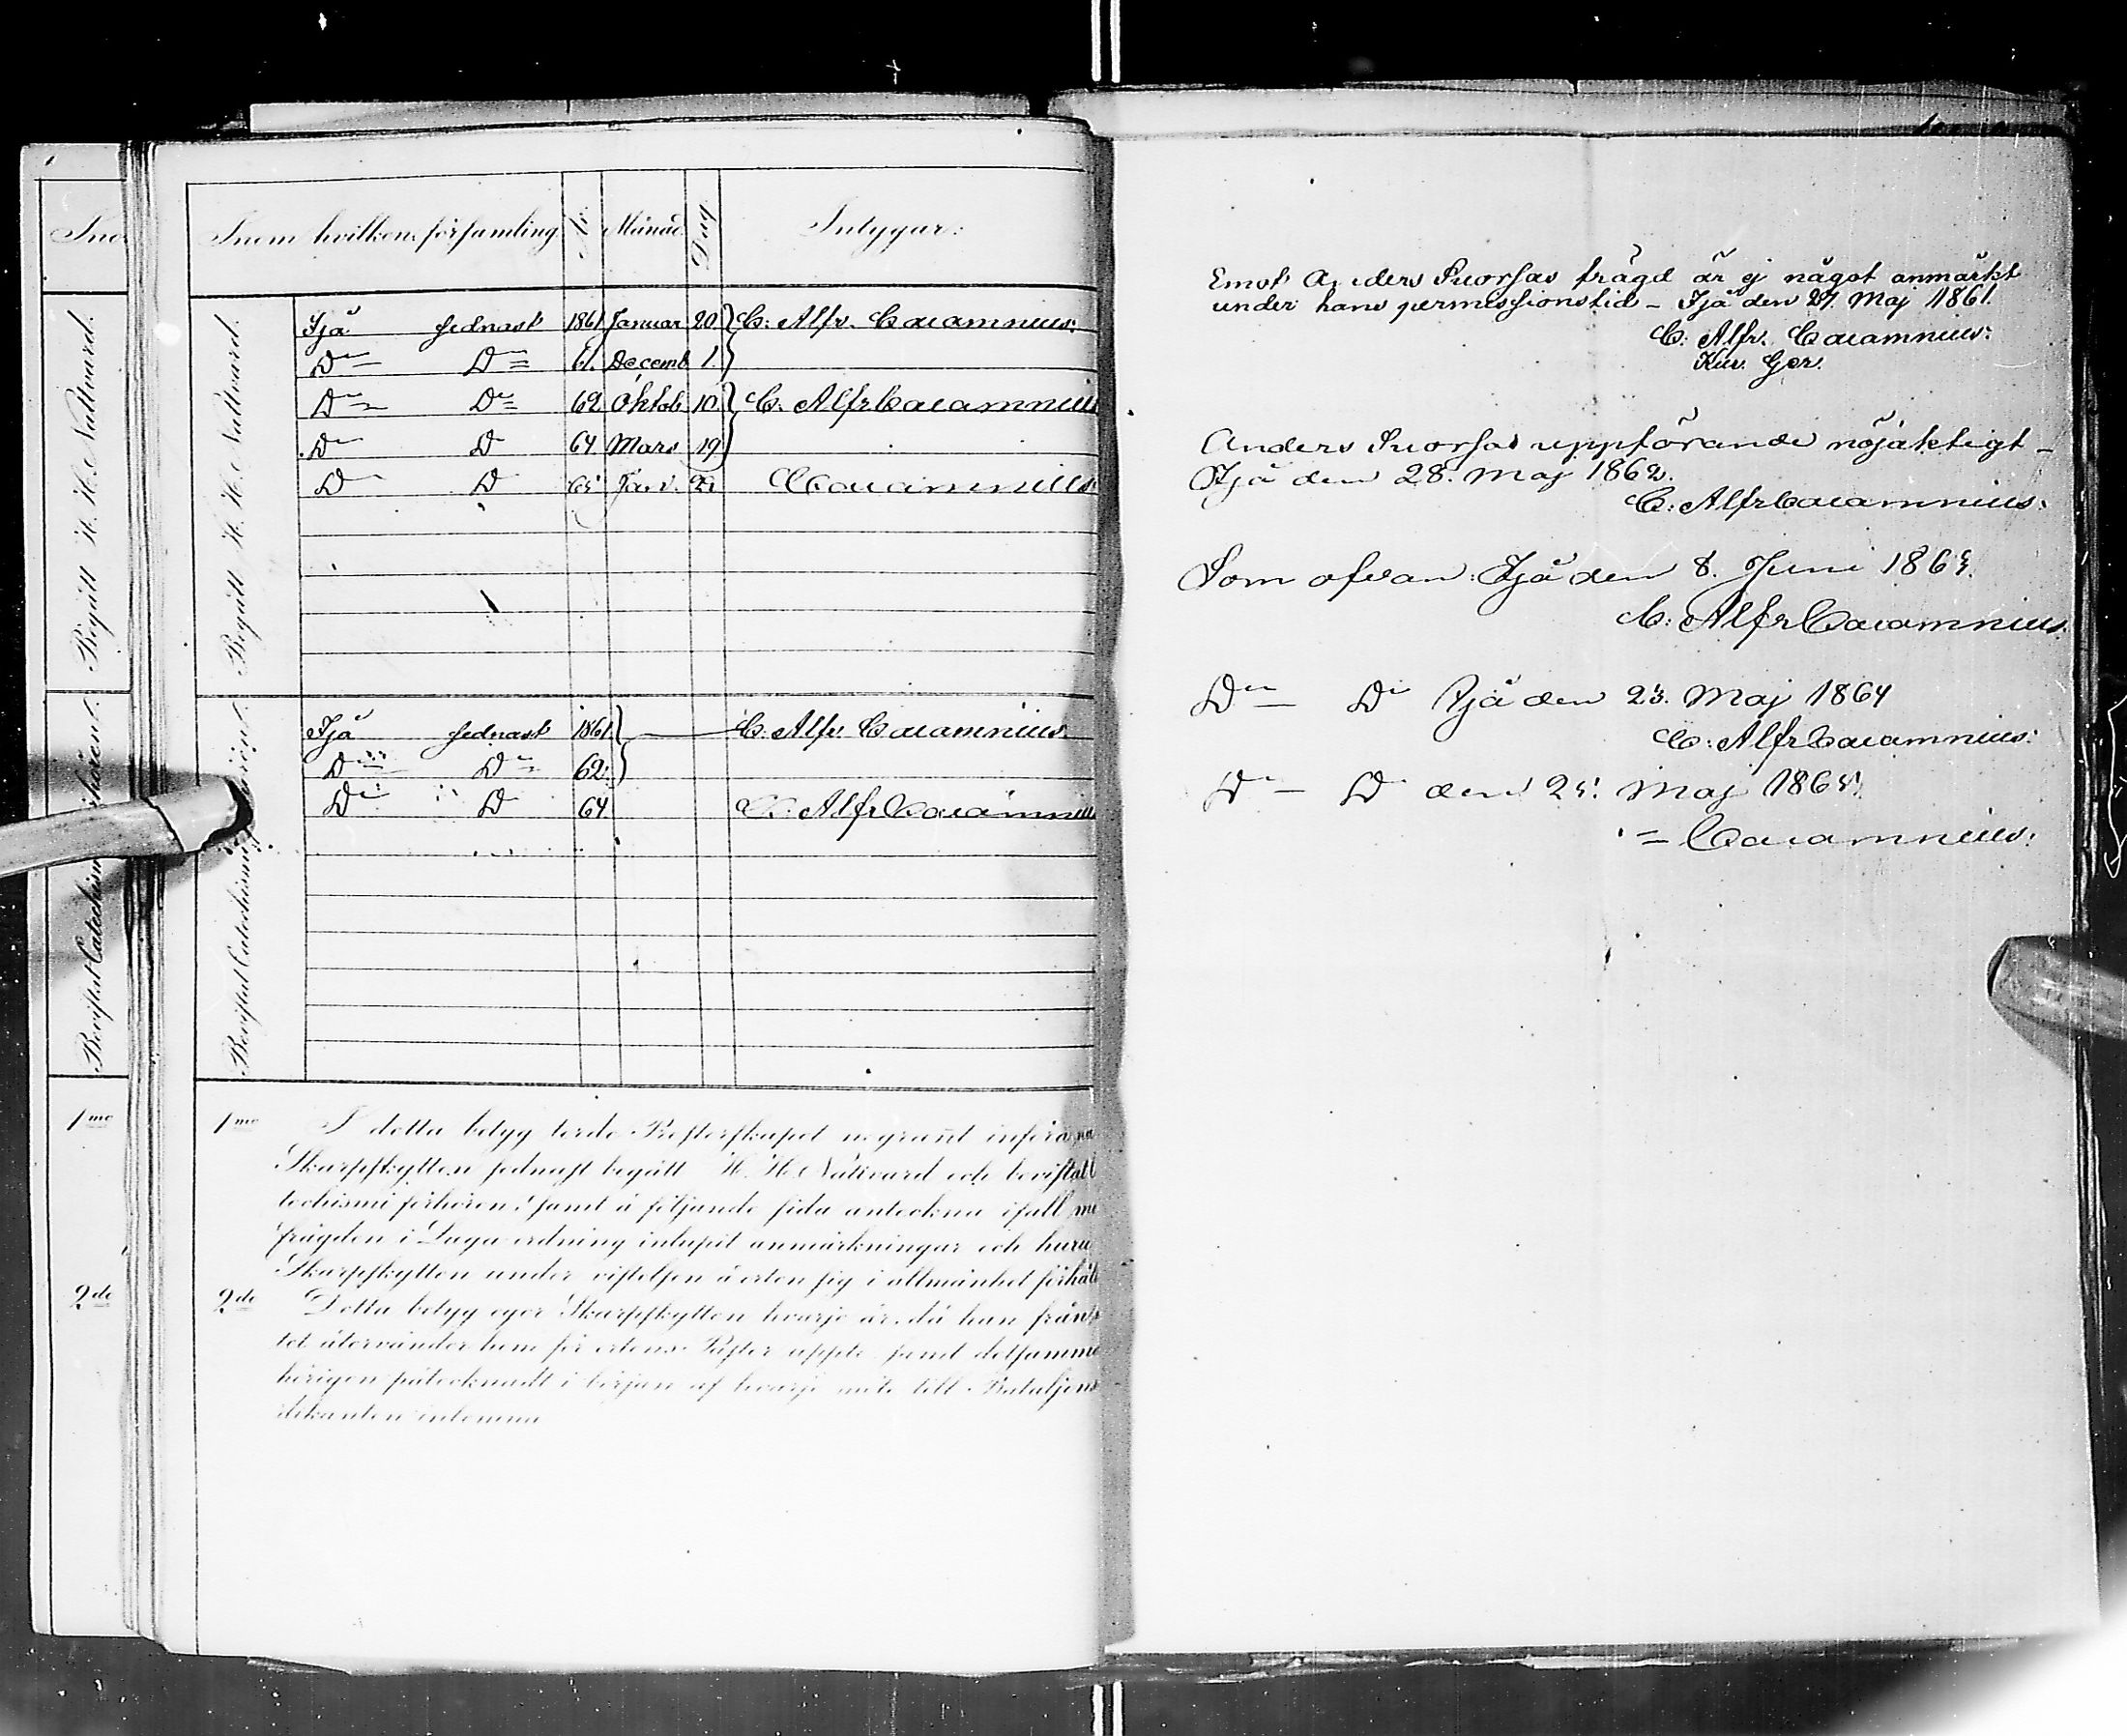 Inem hvilken församling. År. Månad. Dag. Intygar:
Begått H. H. Nattvard.
Ijå sednast 1861 Januar 20. C: Alfr. Cajamnius:
D:o D:o 61. Decemb 1.
D:o D:o 62 Oktob. 10. C: Alfr Cajamnius
D:o D:o 64 Mars 19
D:o D:o 65 Jan. Cajamnius
Bevistat Catechismiförhören:
Ijå sednast 1861 C. Alfr. Cajamnius:
D:o D:o 62.
D:o D:o 64 C: Alfr Cajamnius
1mo I detta betyg torde Presterskapet nogrant införa
Skarpskytten sednast begått H. H. Nattvard och bevistat
techismi förhören; samt å följande sida anteckna ifall
frägden i Laga ordning inlupit anmärkningar och huru
Skarpskytten under vistelsen å orten sig i allmänhet förhåll
2do Detta betyg eger Skarpskytten hvarje år, då han från
tet återvänder hem för ortens Paster uppte samt detsamma
hörigen påtecknadt i början af hvarje möte till Bataljons
dikanten inlemna
Ino
Begått H. H. Nattvard.
1mo
2do
Emot Anders Suorsas frägd är ej något anmärkt
under hans permissionstid – Ijå den 27 Maj 1861.
C: Alfr. Cajamnius:
Anders Suorsas uppförande nöjaktigt –
Ijå den 28. Maj 1862.
C: Alfr Cajamnius:
Som ofvan: Ijå den 8. Juni 1863.
C: Alfr Cajamnius.
D:o – D:o Ijå den 23. Maj 1864
C: Alfr Cajamnius:
D:o – D:o den 25. Maj 1865.
= Cajamnius: